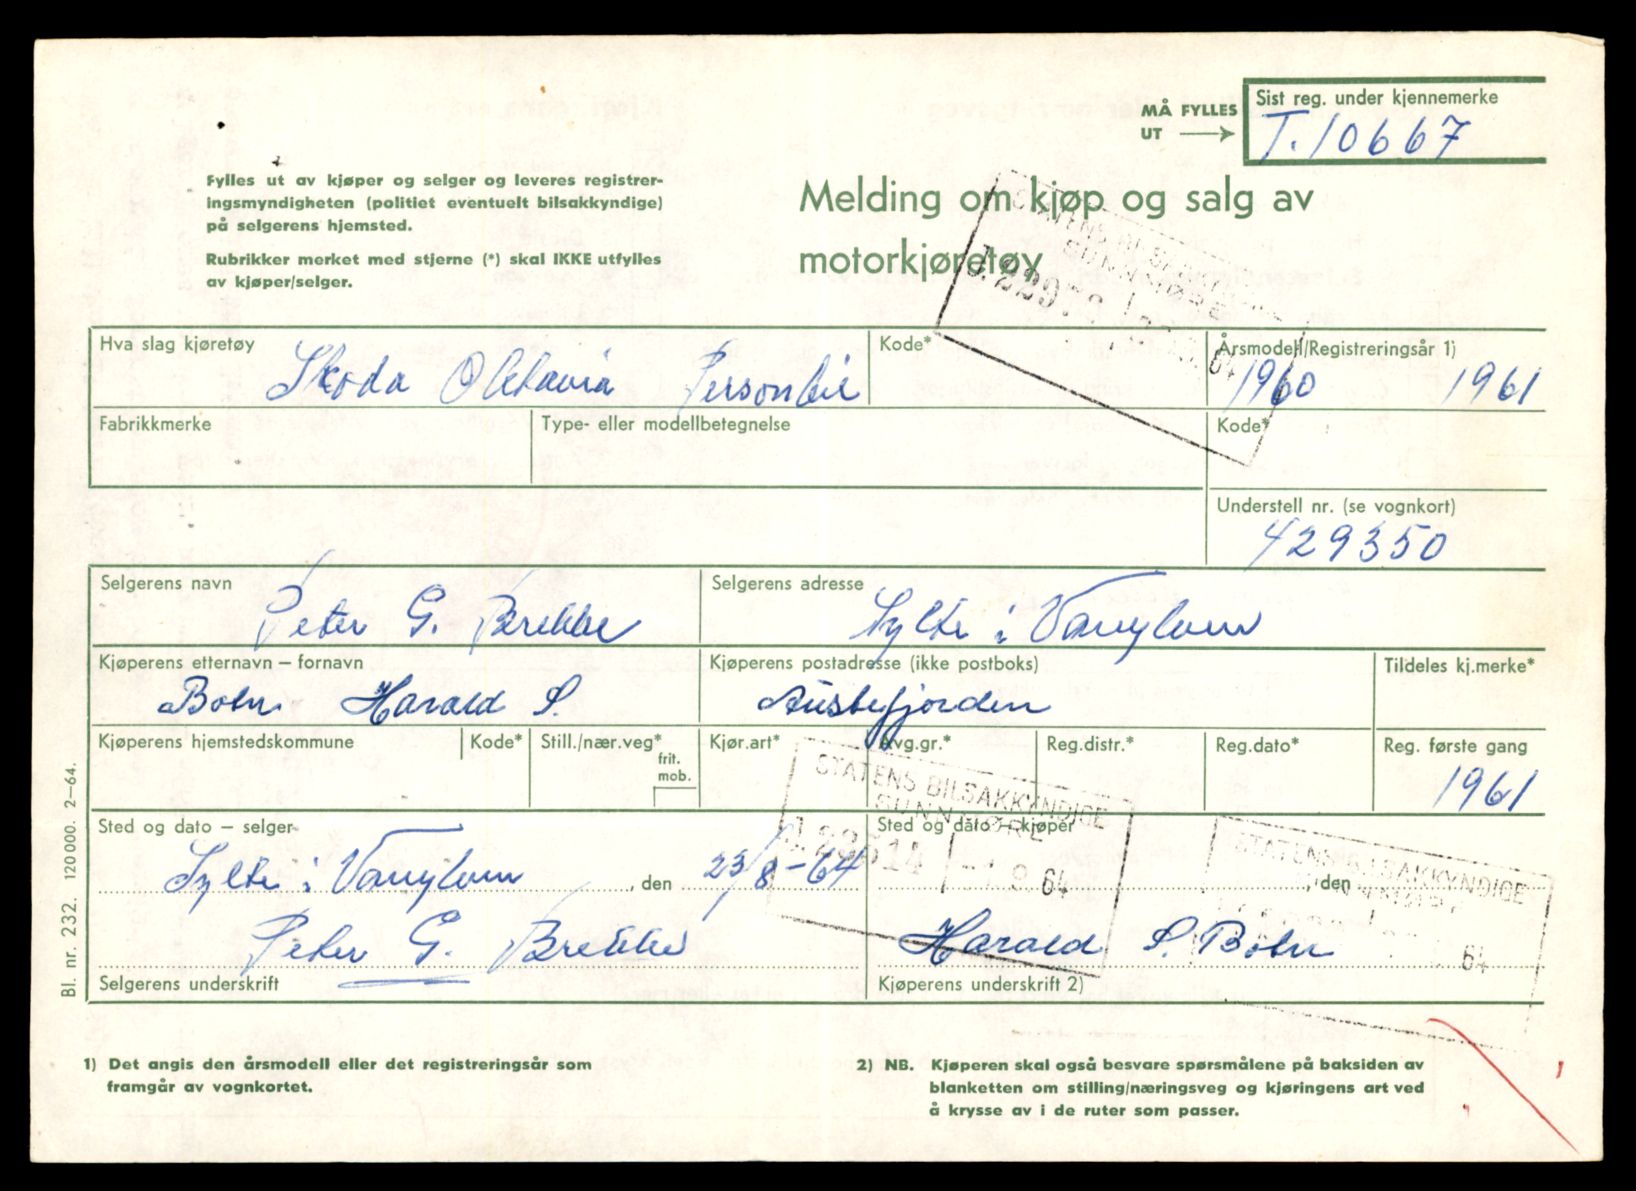 MÅ FYLLES
UT →
Sist reg. under kjennemerke
T.10667
Fylles ut av kjøper og selger og leveres registrer-
ingsmyndigheten (politiet eventuelt bilsakkyndige)
på selgerens hjemsted.
Rubrikker merket med stjerne (*) skal IKKE utfylles
av kjøper/selger.
Melding om kjøp og salg av
motorkjøretøy
STATENS BILSAKKYNDIGE
SUNNMØRE
Hva slag kjøretøy
Skoda Oktavia Personbil
Kode*
Årsmodell/Registreringsår 1)
1960 1961
64
Fabrikkmerke
Type- eller modellbetegnelse
Kode*
Understell nr. (se vognkort)
429350
Selgerens navn
Peter G. Brekke
Selgerens adresse
Sylte i Vanylven
Kjøperens etternavn – fornavn
Harald S.
Kjøperens postadresse (ikke postboks)
Austefjorden
Tildeles kj.merke*
Kjøperens hjemstedskommune
Kode*
Still./nær.veg*
frit.
mob.
Kjør.art*
Avg.gr.*
Reg.distr.*
Reg.dato*
Reg. første gang
1961
STATENS BILSAKKYNDIGE
SUNNMØRE
-1.9.64
Sted og dato – selger
Sylte i Vanylven, den 23/8-64
Sted og dato – kjøper
, den
STATENS BILSAKKYNDIGE
64
Peter G. Brekke
Selgerens underskrift
Harald S.
Kjøperens underskrift 2)
Bl. nr. 232. 120000. 2–64.
1) Det angis den årsmodell eller det registreringsår som
framgår av vognkortet.
2) NB. Kjøperen skal også besvare spørsmålene på baksiden av
blanketten om stilling/næringsveg og kjøringens art ved
å krysse av i de ruter som passer.